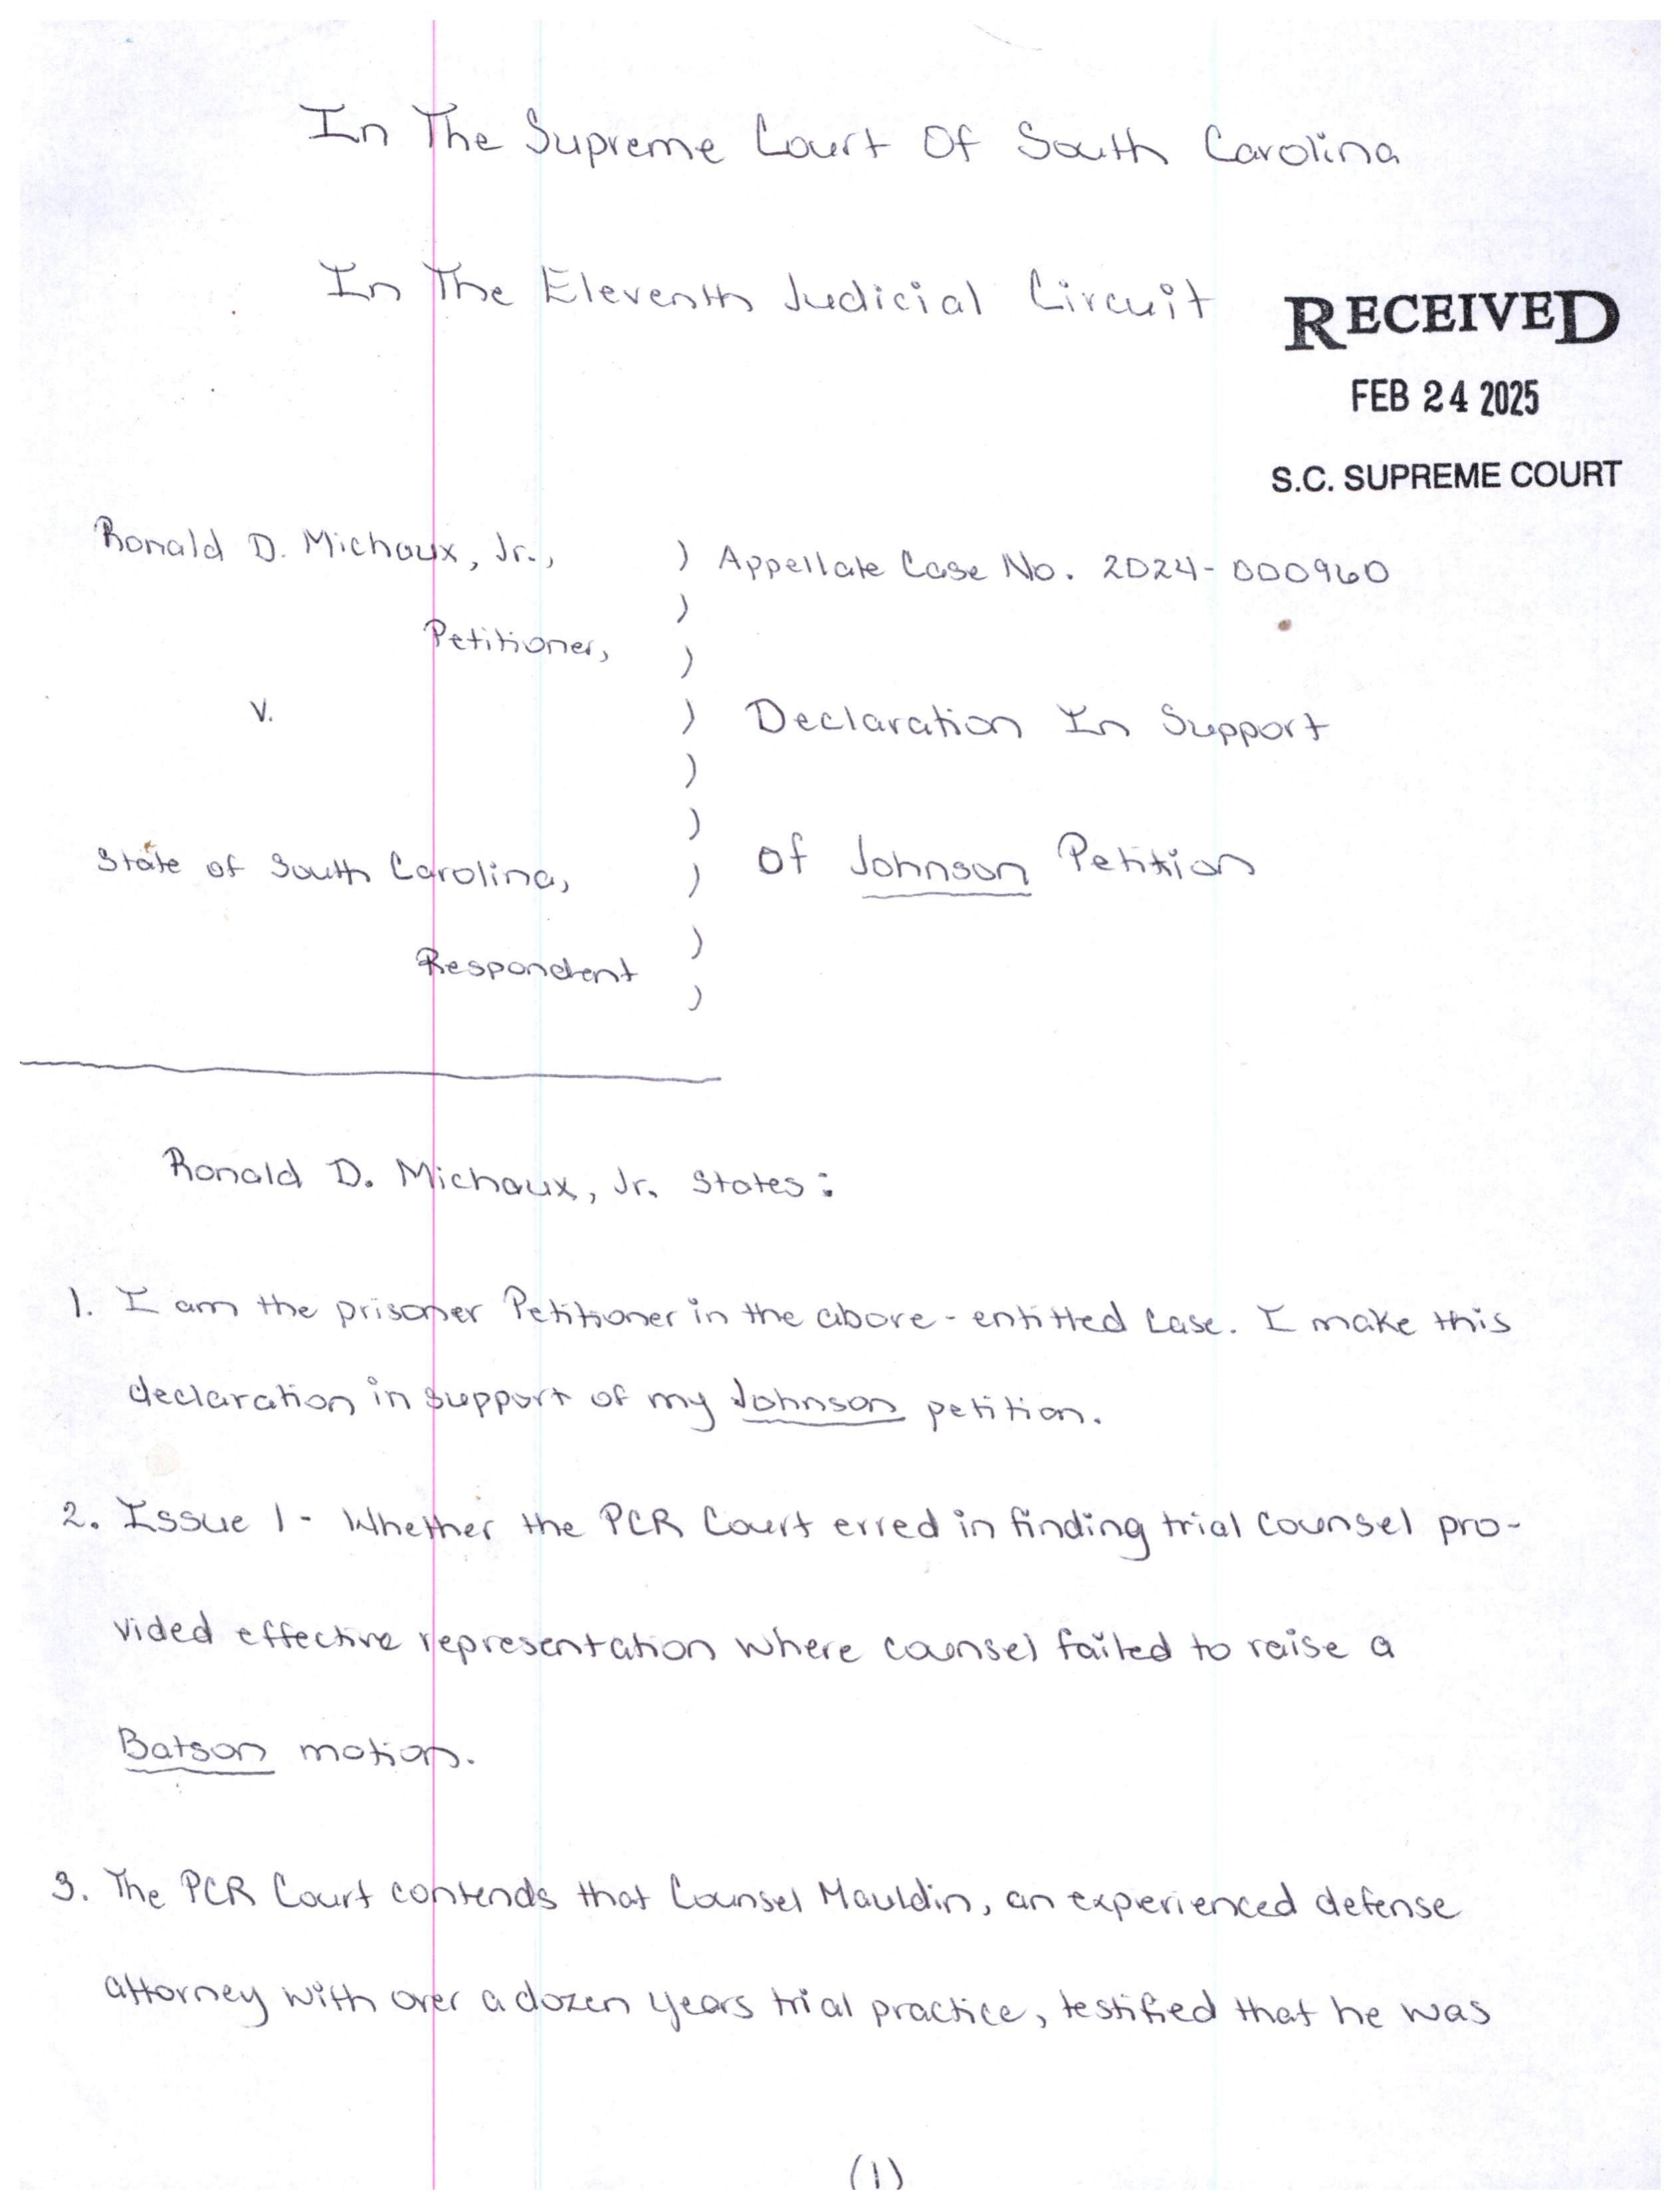 In The Supreme Court Of South Carolina
In The Eleventh Judicial Circuit
RECEIVED
FEB 24 2025
S.C. SUPREME COURT
Ronald D. Michaux, Jr., ) Appellate Case No. 2024-000960
)
Petitioner, )
v. ) Declaration In Support
)
)
State of South Carolina, ) Of Johnson Petition
)
Respondent )
Ronald D. Michaux, Jr. States:
1. I am the prisoner Petitioner in the above-entitled case. I make this
declaration in support of my Johnson petition.
2. Issue 1 - Whether the PCR Court erred in finding trial counsel pro-
vided effective representation where counsel failed to raise a
Batson motion.
3. The PCR Court contends that Counsel Mauldin, an experienced defense
attorney with over a dozen years trial practice, testified that he was
(1)